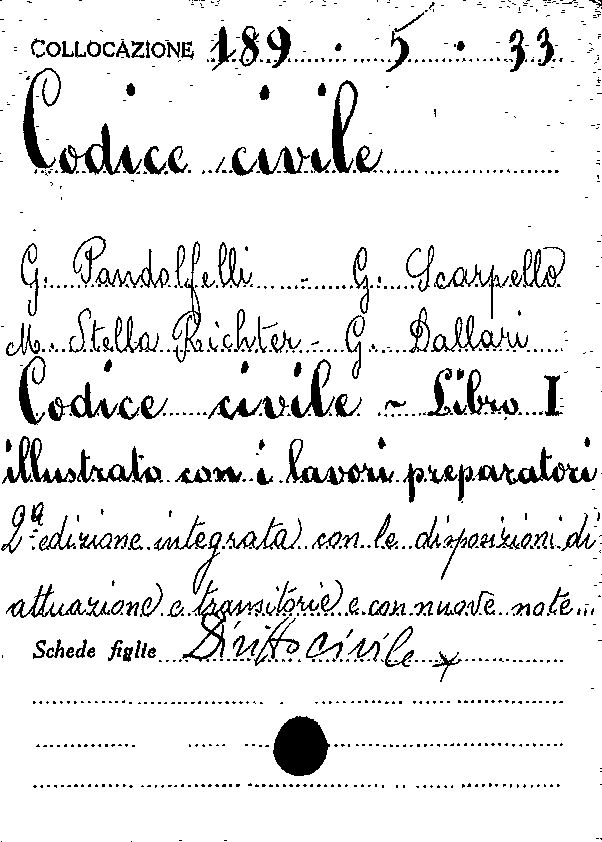 COLLOCAZIONE 189 . 5 . 33
Codice civile
G. Pandolfelli - G. Scarpello
M. Stella Richter - G. Dallari
Codice civile - Libro I
illustrato con i lavori preparatori
2ª edizione integrata con le disposizioni di
attuazione e transitorie e con nuove note...
Schede figlie Diritto civile x